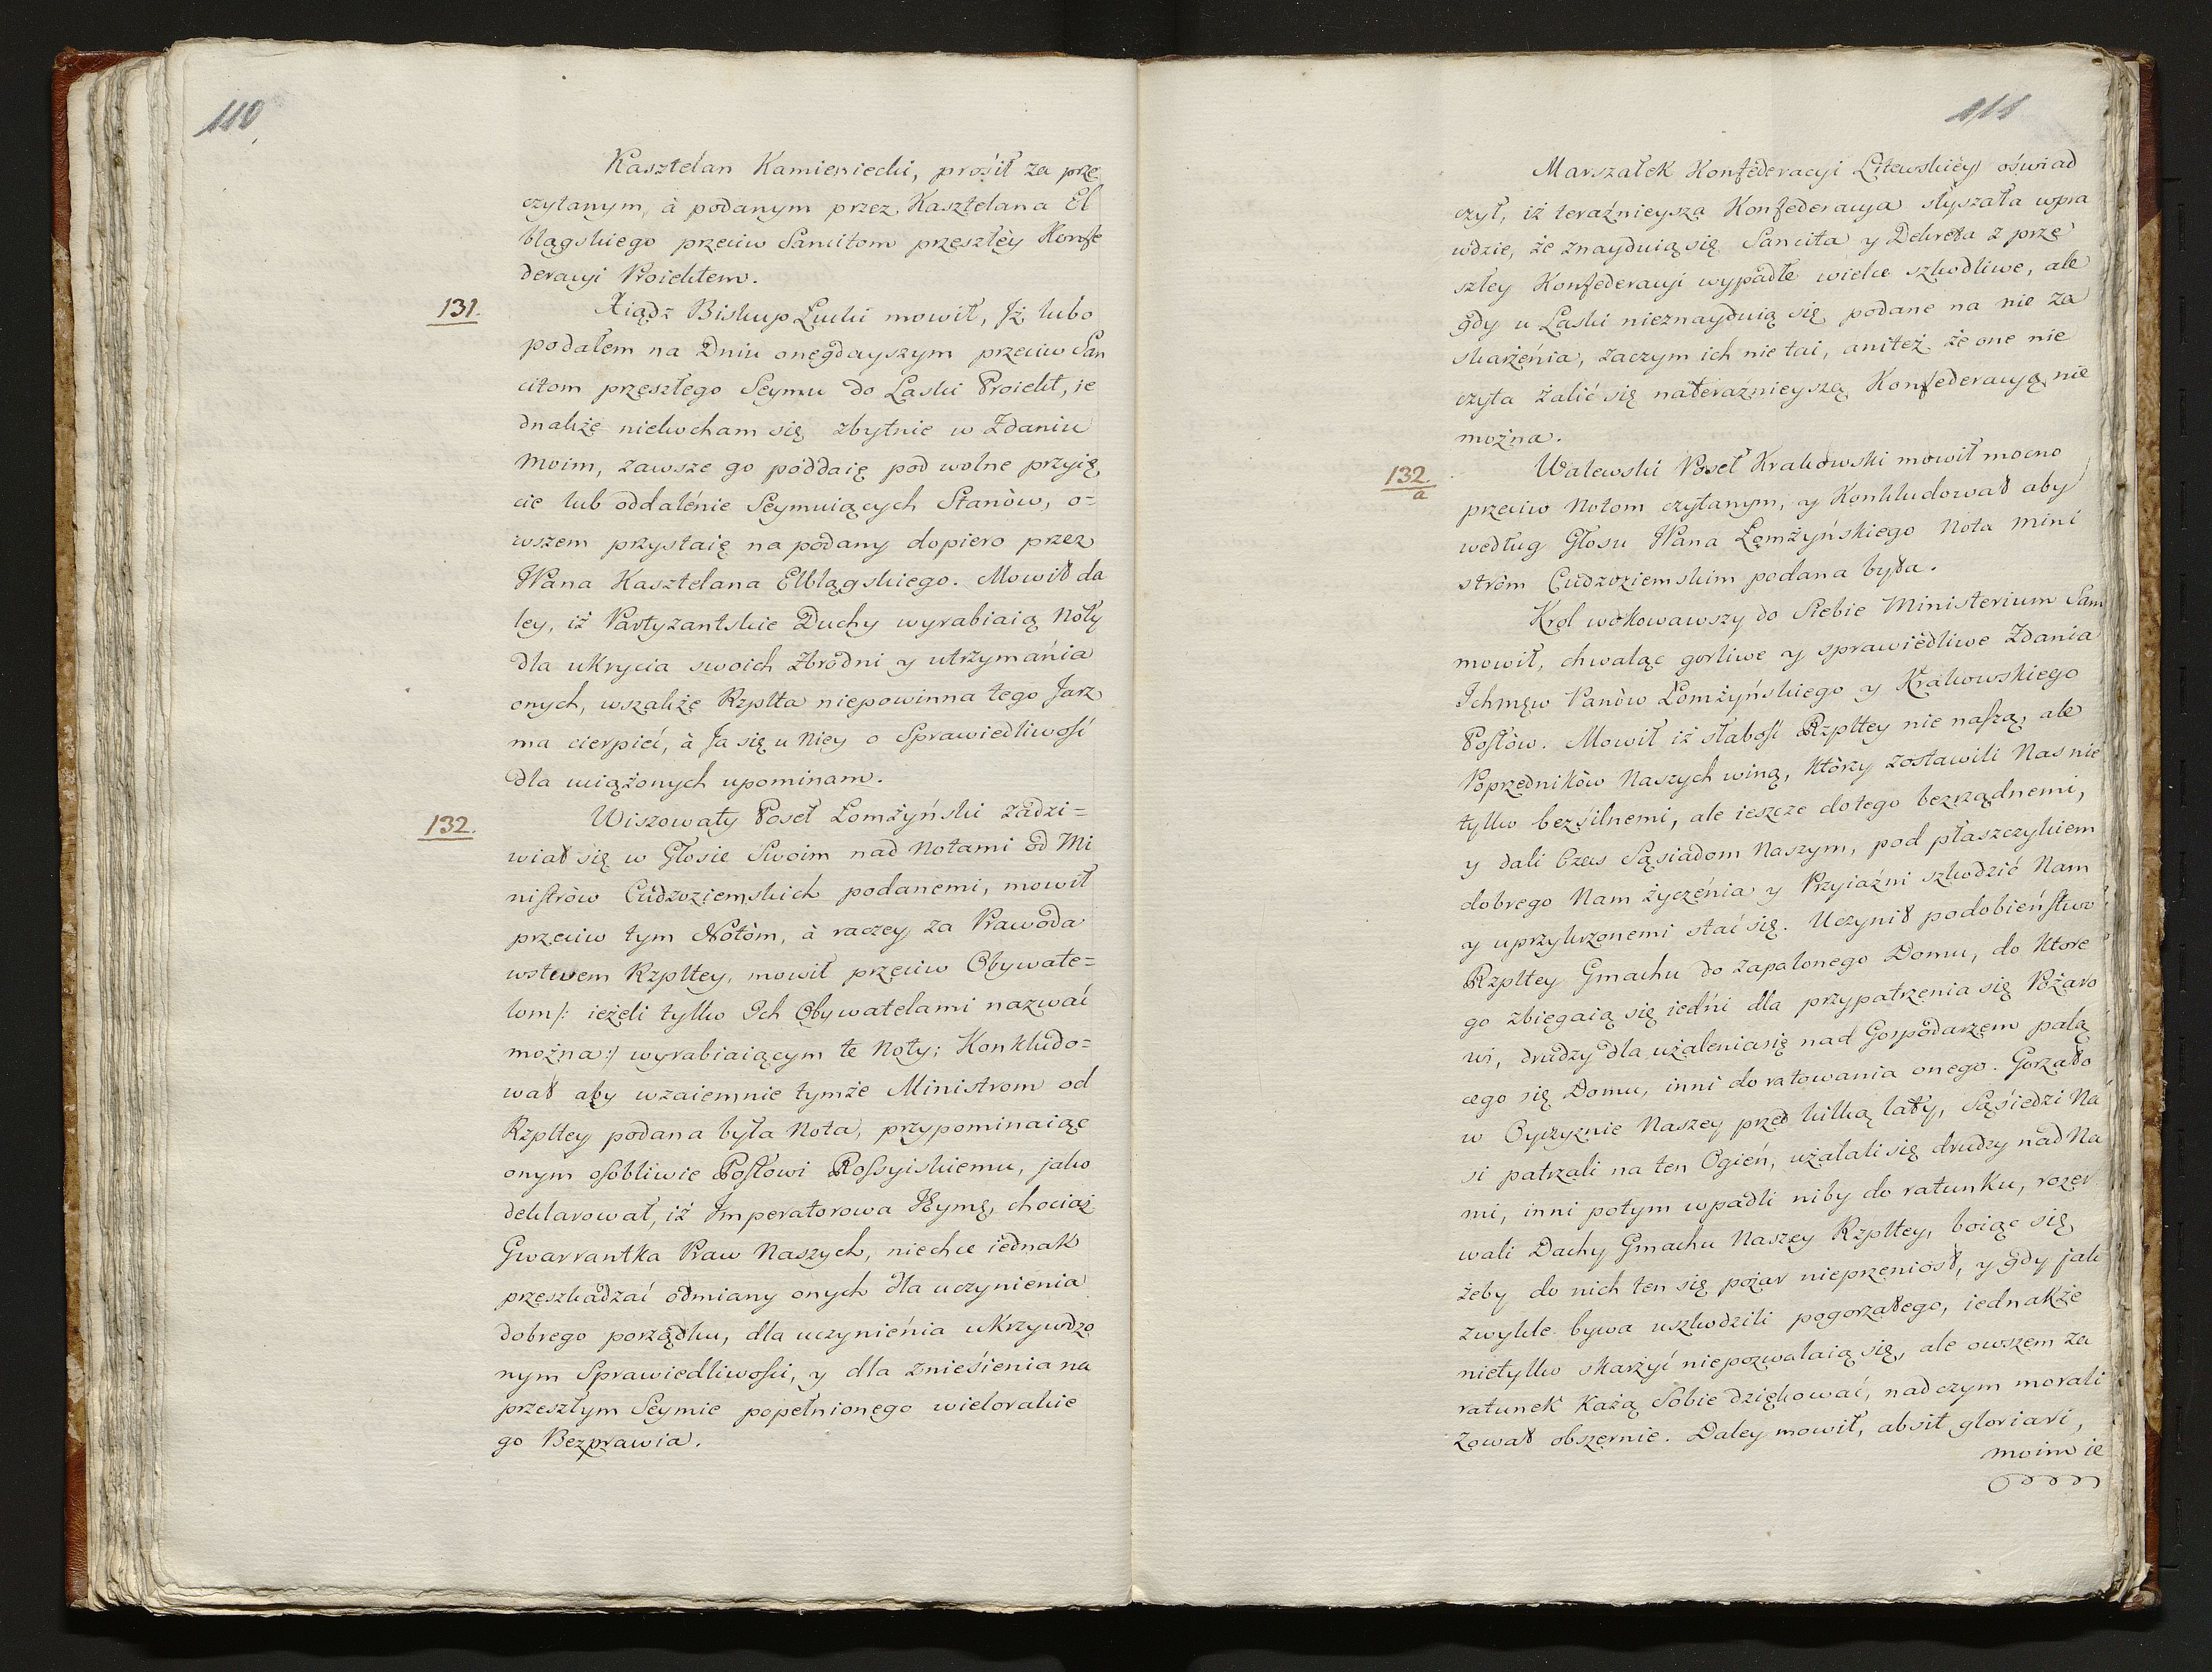 110
Kasztelan Kamieniecki, prosił za prze
czytanym, à podanym przez Kasztelana El
blągskiego przeciw Sancitom przeszłéy Konfe
deracyi Proiektem.
131.
Xiądz Biskup Łucki mowił, Jż lubo
podałem na Dniu onegdayszym przeciw San
citom przeszłego Seymu do Laski Proiekt, ie
dnakże niekocham się zbytnie w Zdaniu
moim, zawsze go póddaię pod wolne przyię
cie lub oddalénie Seymuiących Stanów, o=
wszem przystaię na podany dopiero przez
JPana Kasztelana Elblągskiego. Mowił da
ley, iż Partyzantskie Duchy wyrabiaią Noty
dla ukrycia swoich Zbrodni y utrzymánia
onych, wszakże Rzplta niepowinna tego Jarz
ma cierpieć, à Ja się u Niey o Sprawiedliwość
dla uciążonych upominam.
132.
Wiszowaty Poseł Łomżyński zadzi=
wiał się w Głosie Swoim nad Notami od Mi
nistrów Cudzoziemskich podanemi, mowił
przeciw tym Notòm, à raczey za Prawoda
wstwem Rzpltey, mowił przeciw Obywate=
lom /: ieżeli tylko Ich Obywatelami nazwać
można :/ wyrabiaiącym te Noty; Konkludo=
wał aby wzaiemnie tymże Ministrom od
Rzpltey podana była Nota, przypominaiąc
onym osobliwie Posłowi Rossyiskiemu, jako
deklarował, iż Imperatorowa JEymę, chociaż
Gwarrantka Praw Naszych, niechce iednak
przeszkadzać odmiany onych dla uczynienia
dobrego porządku, dla uczyniénia ukrzywdzo
nym Sprawiedliwości, y dla zniesienia na
przeszłym Seymie popełnionego wielorakie
go Bezprawia.
111
Marszałek Konfederacyi Litewskiéy oświad
czył, iż teraźnieysza Konfederacya słyszała wpra
wdzie, że znayduią się Sancita y Dekreta z prze
szłey Konfederacyi wypadłe wielce szkodliwe, ale
gdy u Laski nieznayduią się podane na nie za
skarżénia, zaczym ich nie tai, aniteż że one nie
czyta żalić się nateraznieyszą Konfederacyą nie
można.
132.
a
Walewski Poseł Krakowski mowił mocno
przeciw Notom czytanym, y Konkludował aby
według Głosu JPana Łomżyńskiego Nota Mini
strom Cudzoziemskim podana była.
Krol wokowawszy do Siebie Ministerium Sam
mowił, chwaląc gorliwe y sprawiedliwe Zdania
Ichmęw Panów Łomżyńskiego y Krakowskiego
Posłòw. Mowił iż słabość Rzpltey nie naszą, ale
Poprzedników Naszych winą, ktòrzy zostawili Nas nie
tylko bezśilnemi, ale ieszcze dotego bezrządnemi,
y dali Czas Sąsiadom Naszym, pod płaszczykiem
dobrego Nam życzénia y Przyiaźni szkodzić Nam
y uprzykrzonemi stać się. Uczynił podobieństwo
Rzpltey Gmachu do zapalonego Domu, do ktore
go zbiegaią się iedńi dla przypatrzenia się Pożaro
wi, drudzy dla użaleniasię nad Gospodarzem palą
cego się Domu, inni do ratowania onego. Gorzało
w Oyczyznie Naszey przed kilką laty, Sąsiedzi Na
si patrzali na ten Ogień, użalali się drudzy nad Na
mi, inni potym wpadli niby do ratunku, rozer
wali Dachy Gmachu Naszey Rzpltey, boiąc się,
żeby do nich ten się pożar nieprzeniosł, y gdy jak
zwykle bywa uszkodzili pogorzałego, iednakże
nietylko skarżyć niepozwalaią się, ale owszem za
ratunek każą Sobie dziękować, nadczym morali
zował obszernie. Daley mowił, absit gloriari,
moim ie